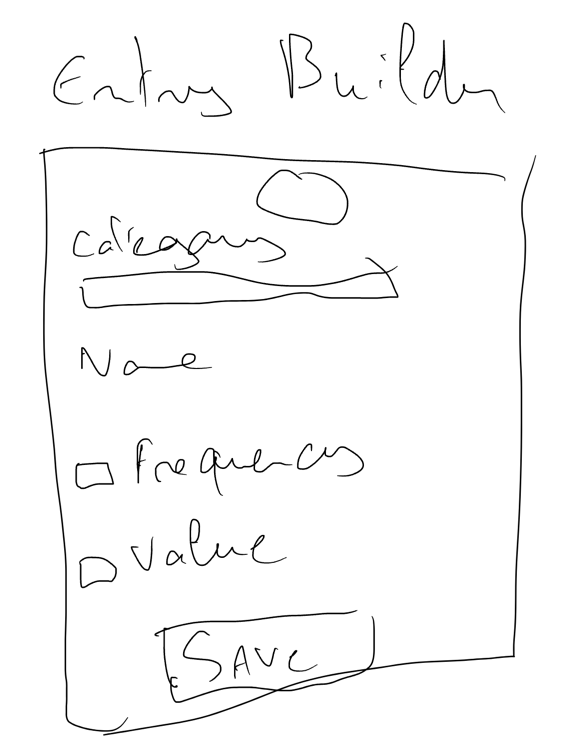 Entry Builder
Category
Name
Frequency
Value
SAVE